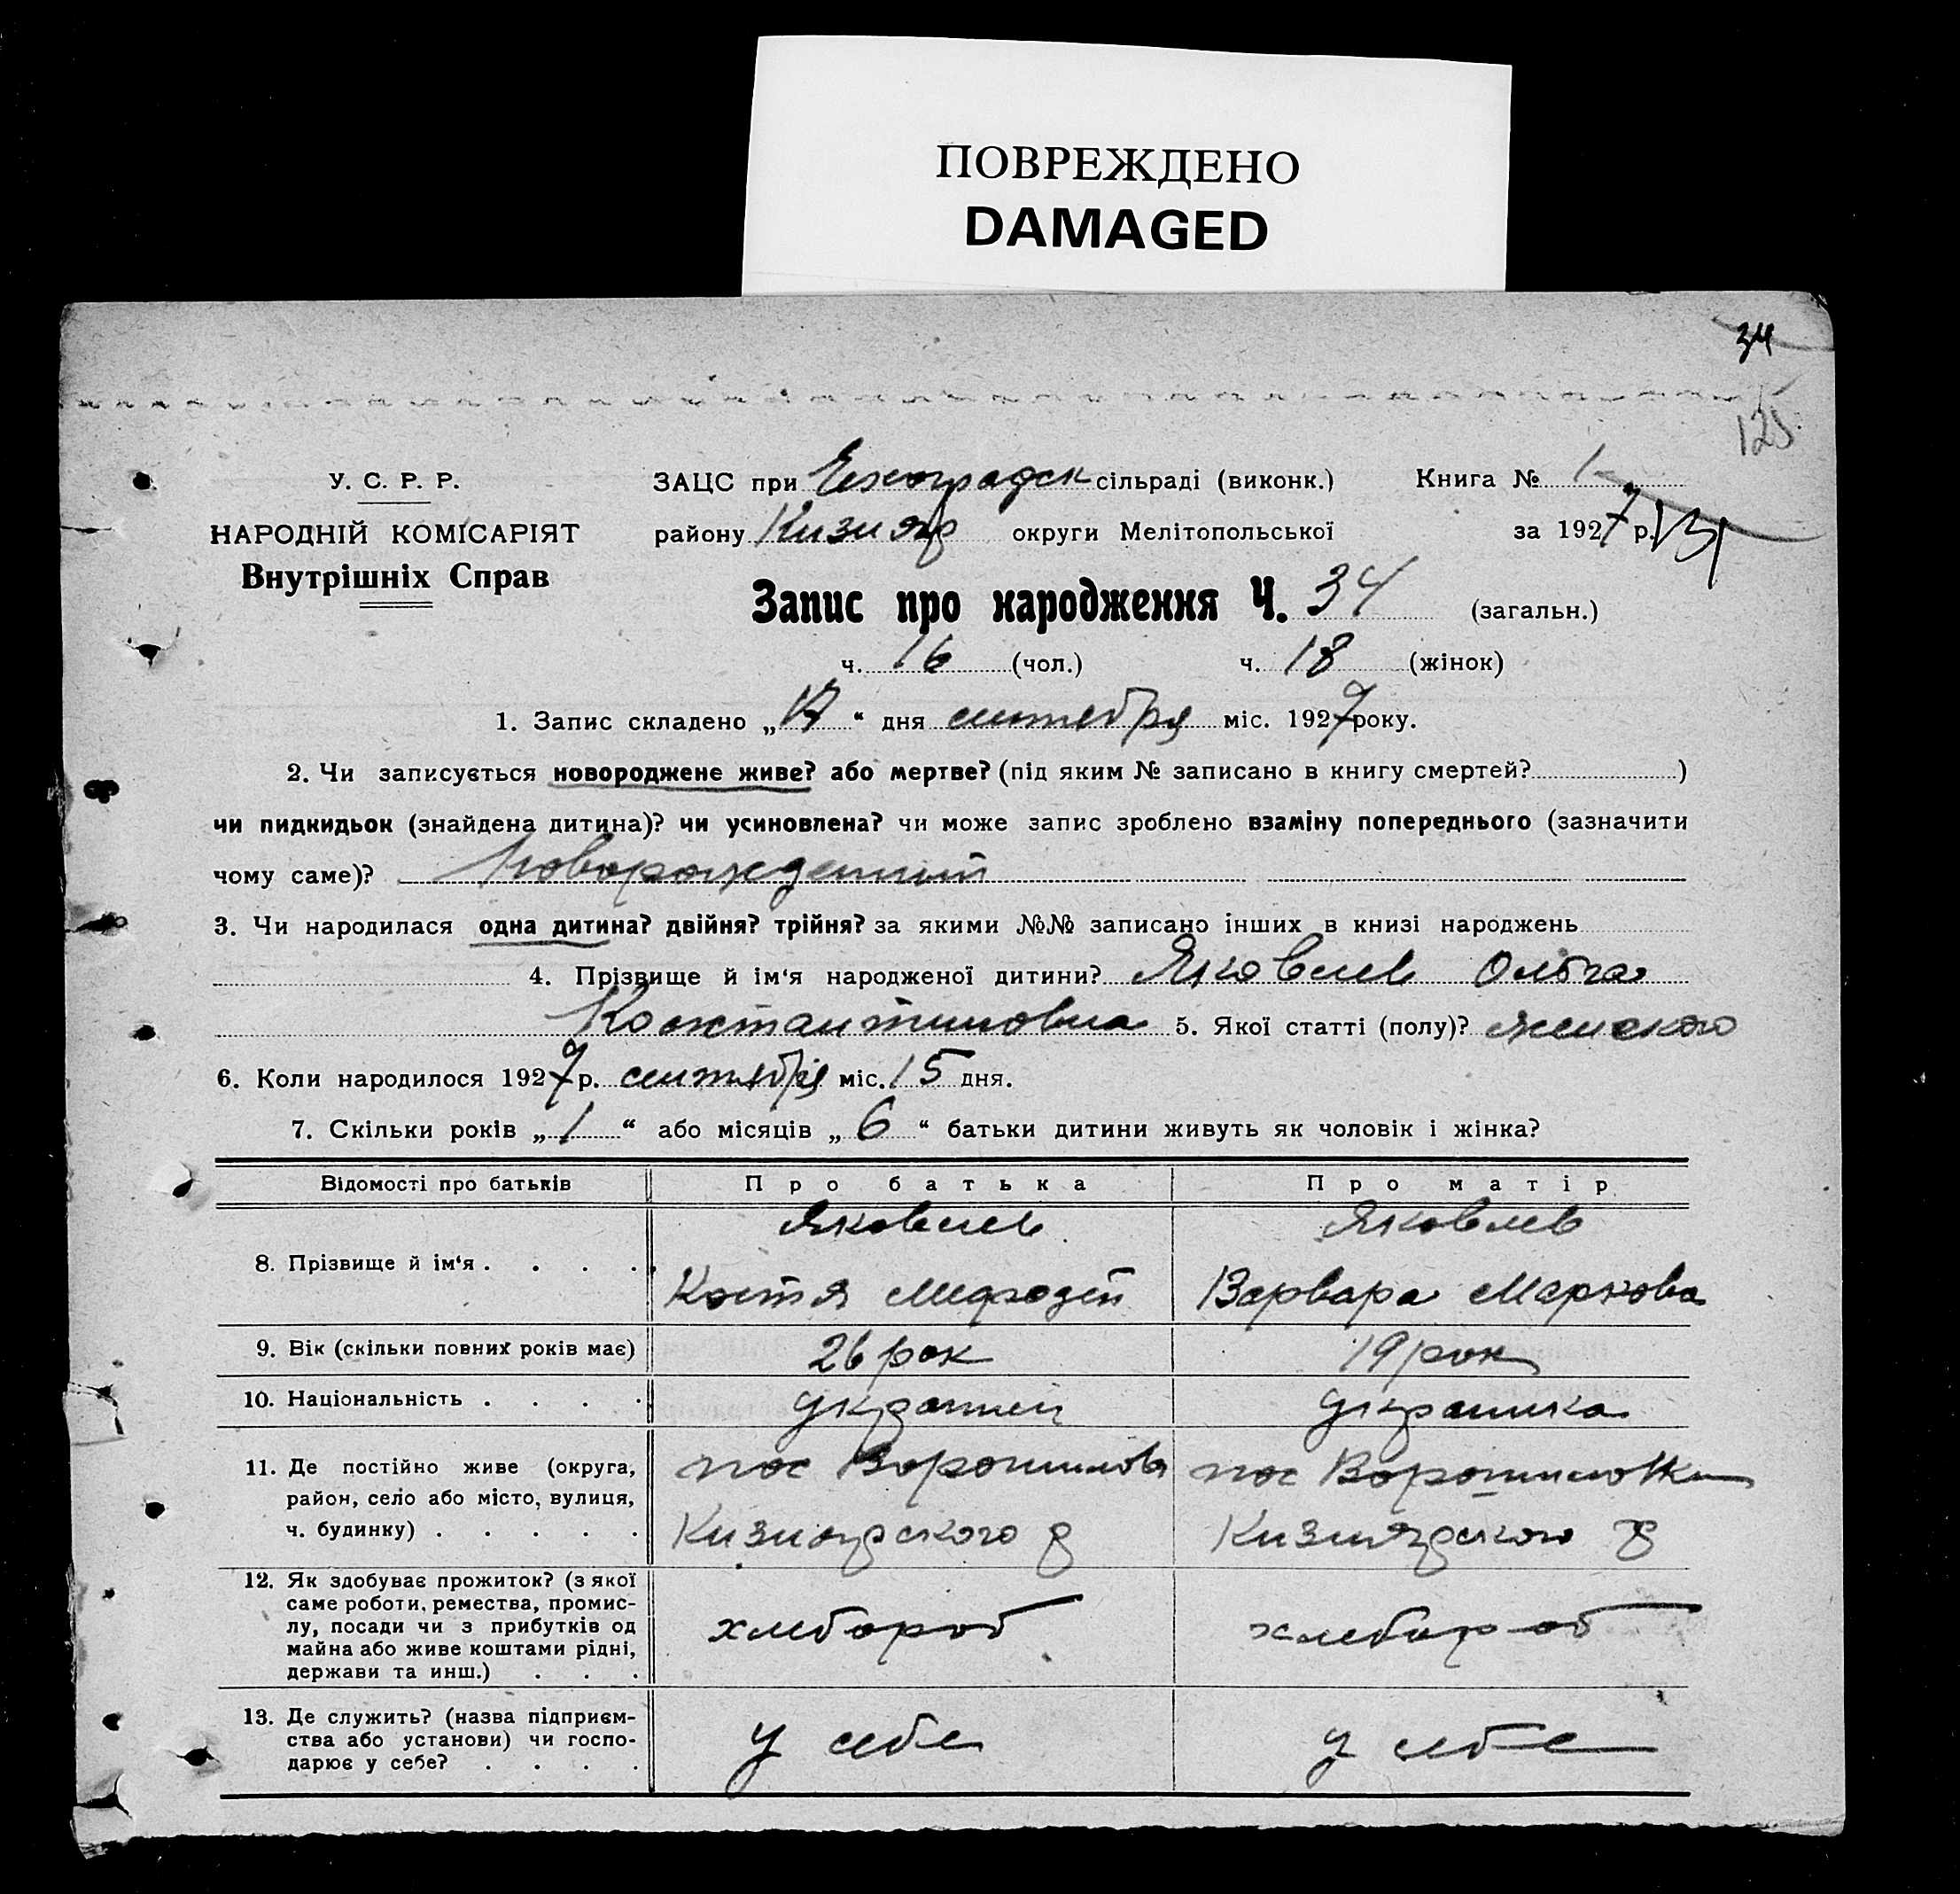 ПОВРЕЖДЕНО
DAMAGED
34
125
У. С. Р. Р.
НАРОДНІЙ КОМІСАРІЯТ
Внутрішніх Справ
ЗАЦС при сільраді (виконк.) Книга № 1
району Кизияр округи Мелітопольської за 1927 р.
Запис про народження Ч. 34 (загальн.)
ч. 16 (чол.) ч. 18 (жінок)
1. Запис складено „ “ дня сентября міс. 1927 року.
2. Чи записується новороджене живе? або мертве? (під яким № записано в книгу смертей? )
чи пидкидьок (знайдена дитина)? чи усиновлена? чи може запис зроблено взаміну попереднього (зазначити
чому саме)? Новорожденный
3. Чи народилася одна дитина? двійня? трійня? за якими №№ записано інших в книзі народжень
4. Прізвище й ім‘я народженої дитини? Яковлев Ольга
Константиновна 5. Якої статті (полу)? женского
6. Коли народилося 1927 р. сентября міс. 15 дня.
7. Скільки років „ 1 “ або місяців „ 6 “ батьки дитини живуть як чоловік і жінка?
Відомості про батьків Про батька Про матір
8. Прізвище й ім‘я . . . . Яковлев Яковлев
Костя Мефодей Варвара Маркова
9. Вік (скільки повних років має) 26 рок 19 рок
10. Національність . . . . Украинец Украинка
11. Де постійно живе (округа, район, село або місто, вулиця, ч. будинку) . . . . . пос Ворошилов пос Ворошиловки
Кизиярского р Кизиярского р
12. Як здобуває прожиток? (з якої саме роботи, ремества, промислу, посади чи з прибутків од майна або живе коштами рідні, держави та инш.) . . . хлебороб хлебороб
13. Де служить? (назва підприємства або установи) чи господарює у себе? . . . . у себе у себе